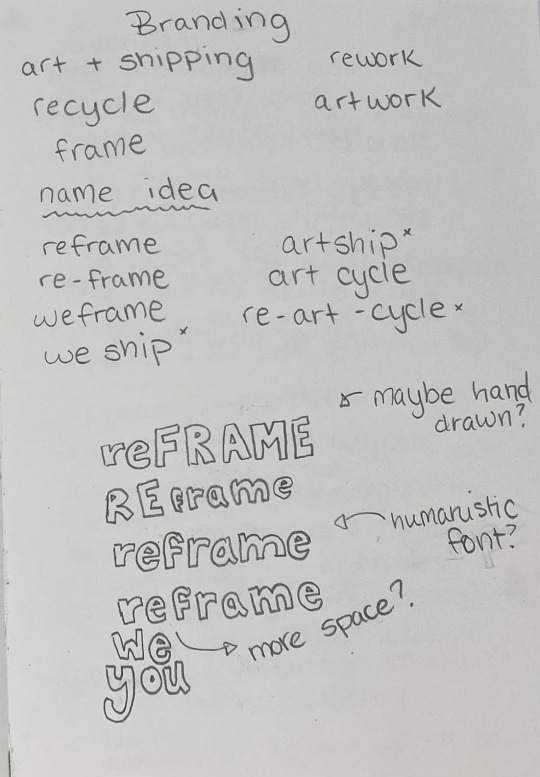 Branding
art + shipping
rework
recycle
artwork
frame
name idea
reframe
artship*
re-frame
art cycle
weframe
re-art-cycle*
we ship*
maybe hand
drawn?
reFRAME
REframe
humanistic
font?
reframe
reframe
we
more space?
you